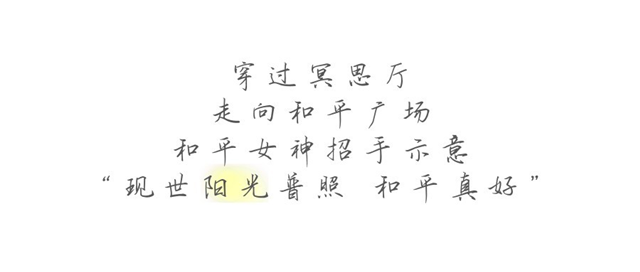 穿过冥思厅
走向和平广场
和平女神招手示意
“现世阳光普照 和平真好”